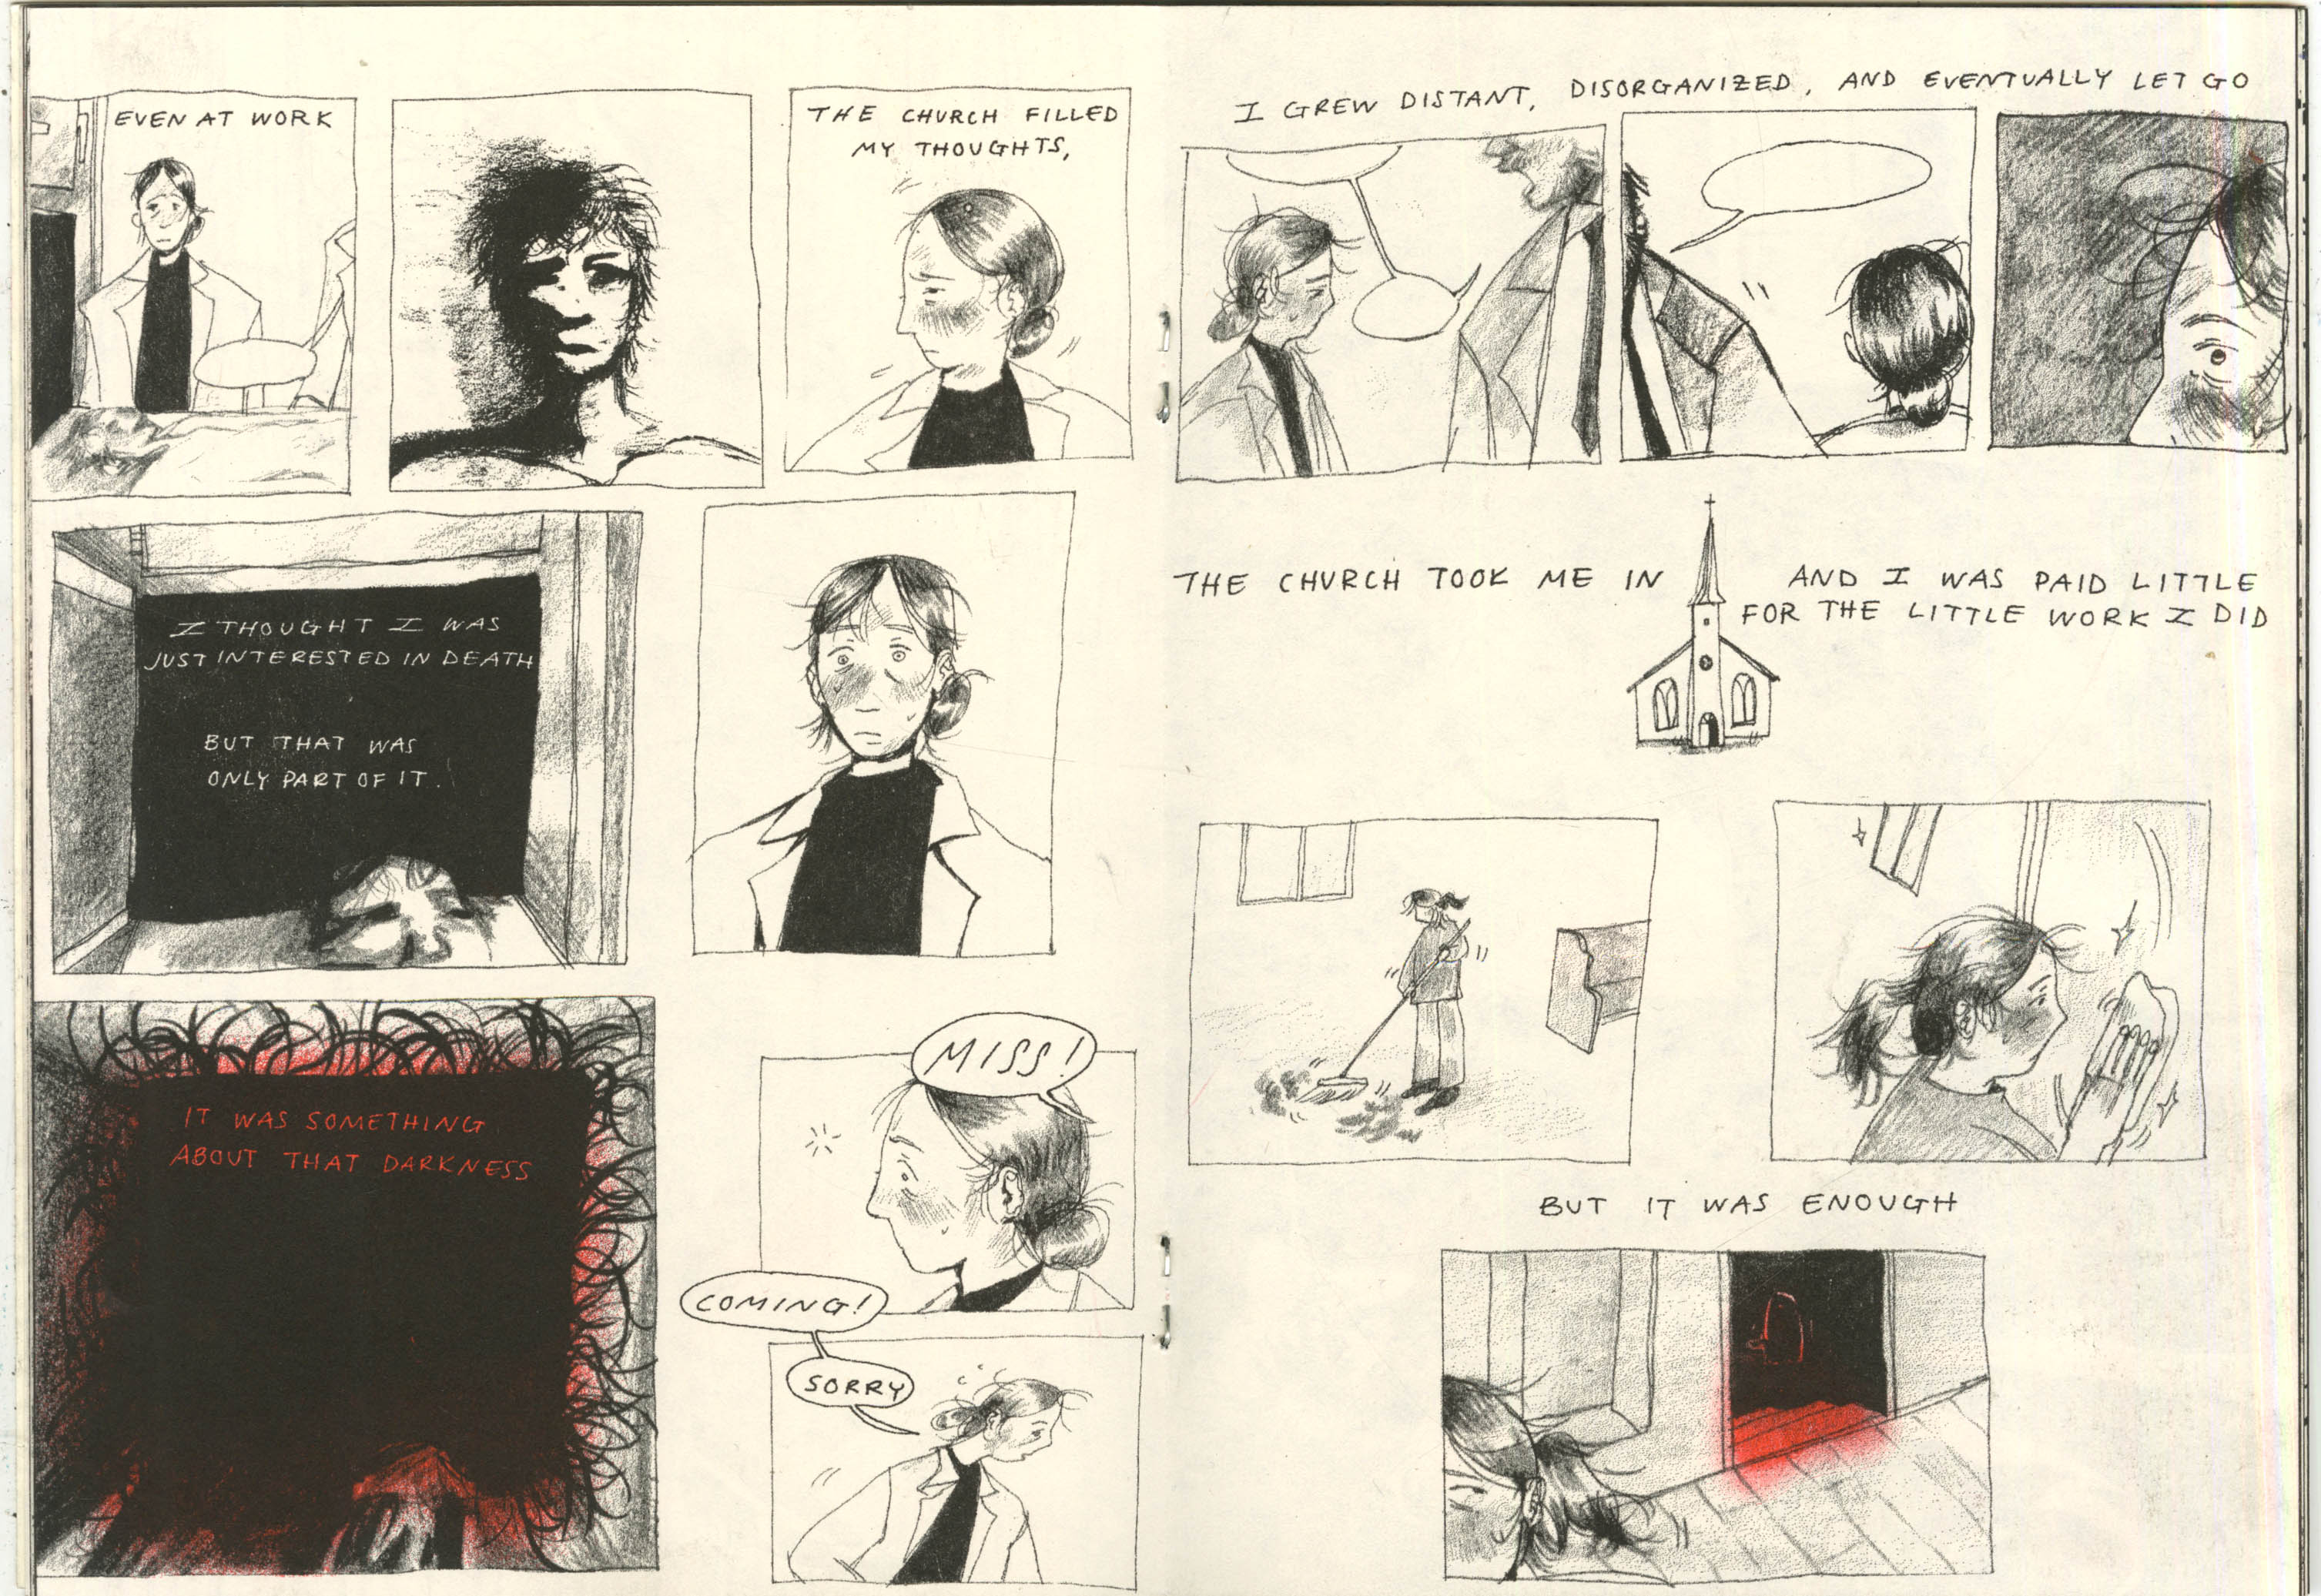 EVEN AT WORK
THE CHURCH FILLED
MY THOUGHTS,
I THOUGHT I WAS
JUST INTERESTED IN DEATH
BUT THAT WAS
ONLY PART OF IT.
IT WAS SOMETHING
ABOUT THAT DARKNESS
MISS!
COMING!
SORRY
I GREW DISTANT, DISORGANIZED, AND EVENTUALLY LET GO
THE CHURCH TOOK ME IN
AND I WAS PAID LITTLE
FOR THE LITTLE WORK I DID
BUT IT WAS ENOUGH